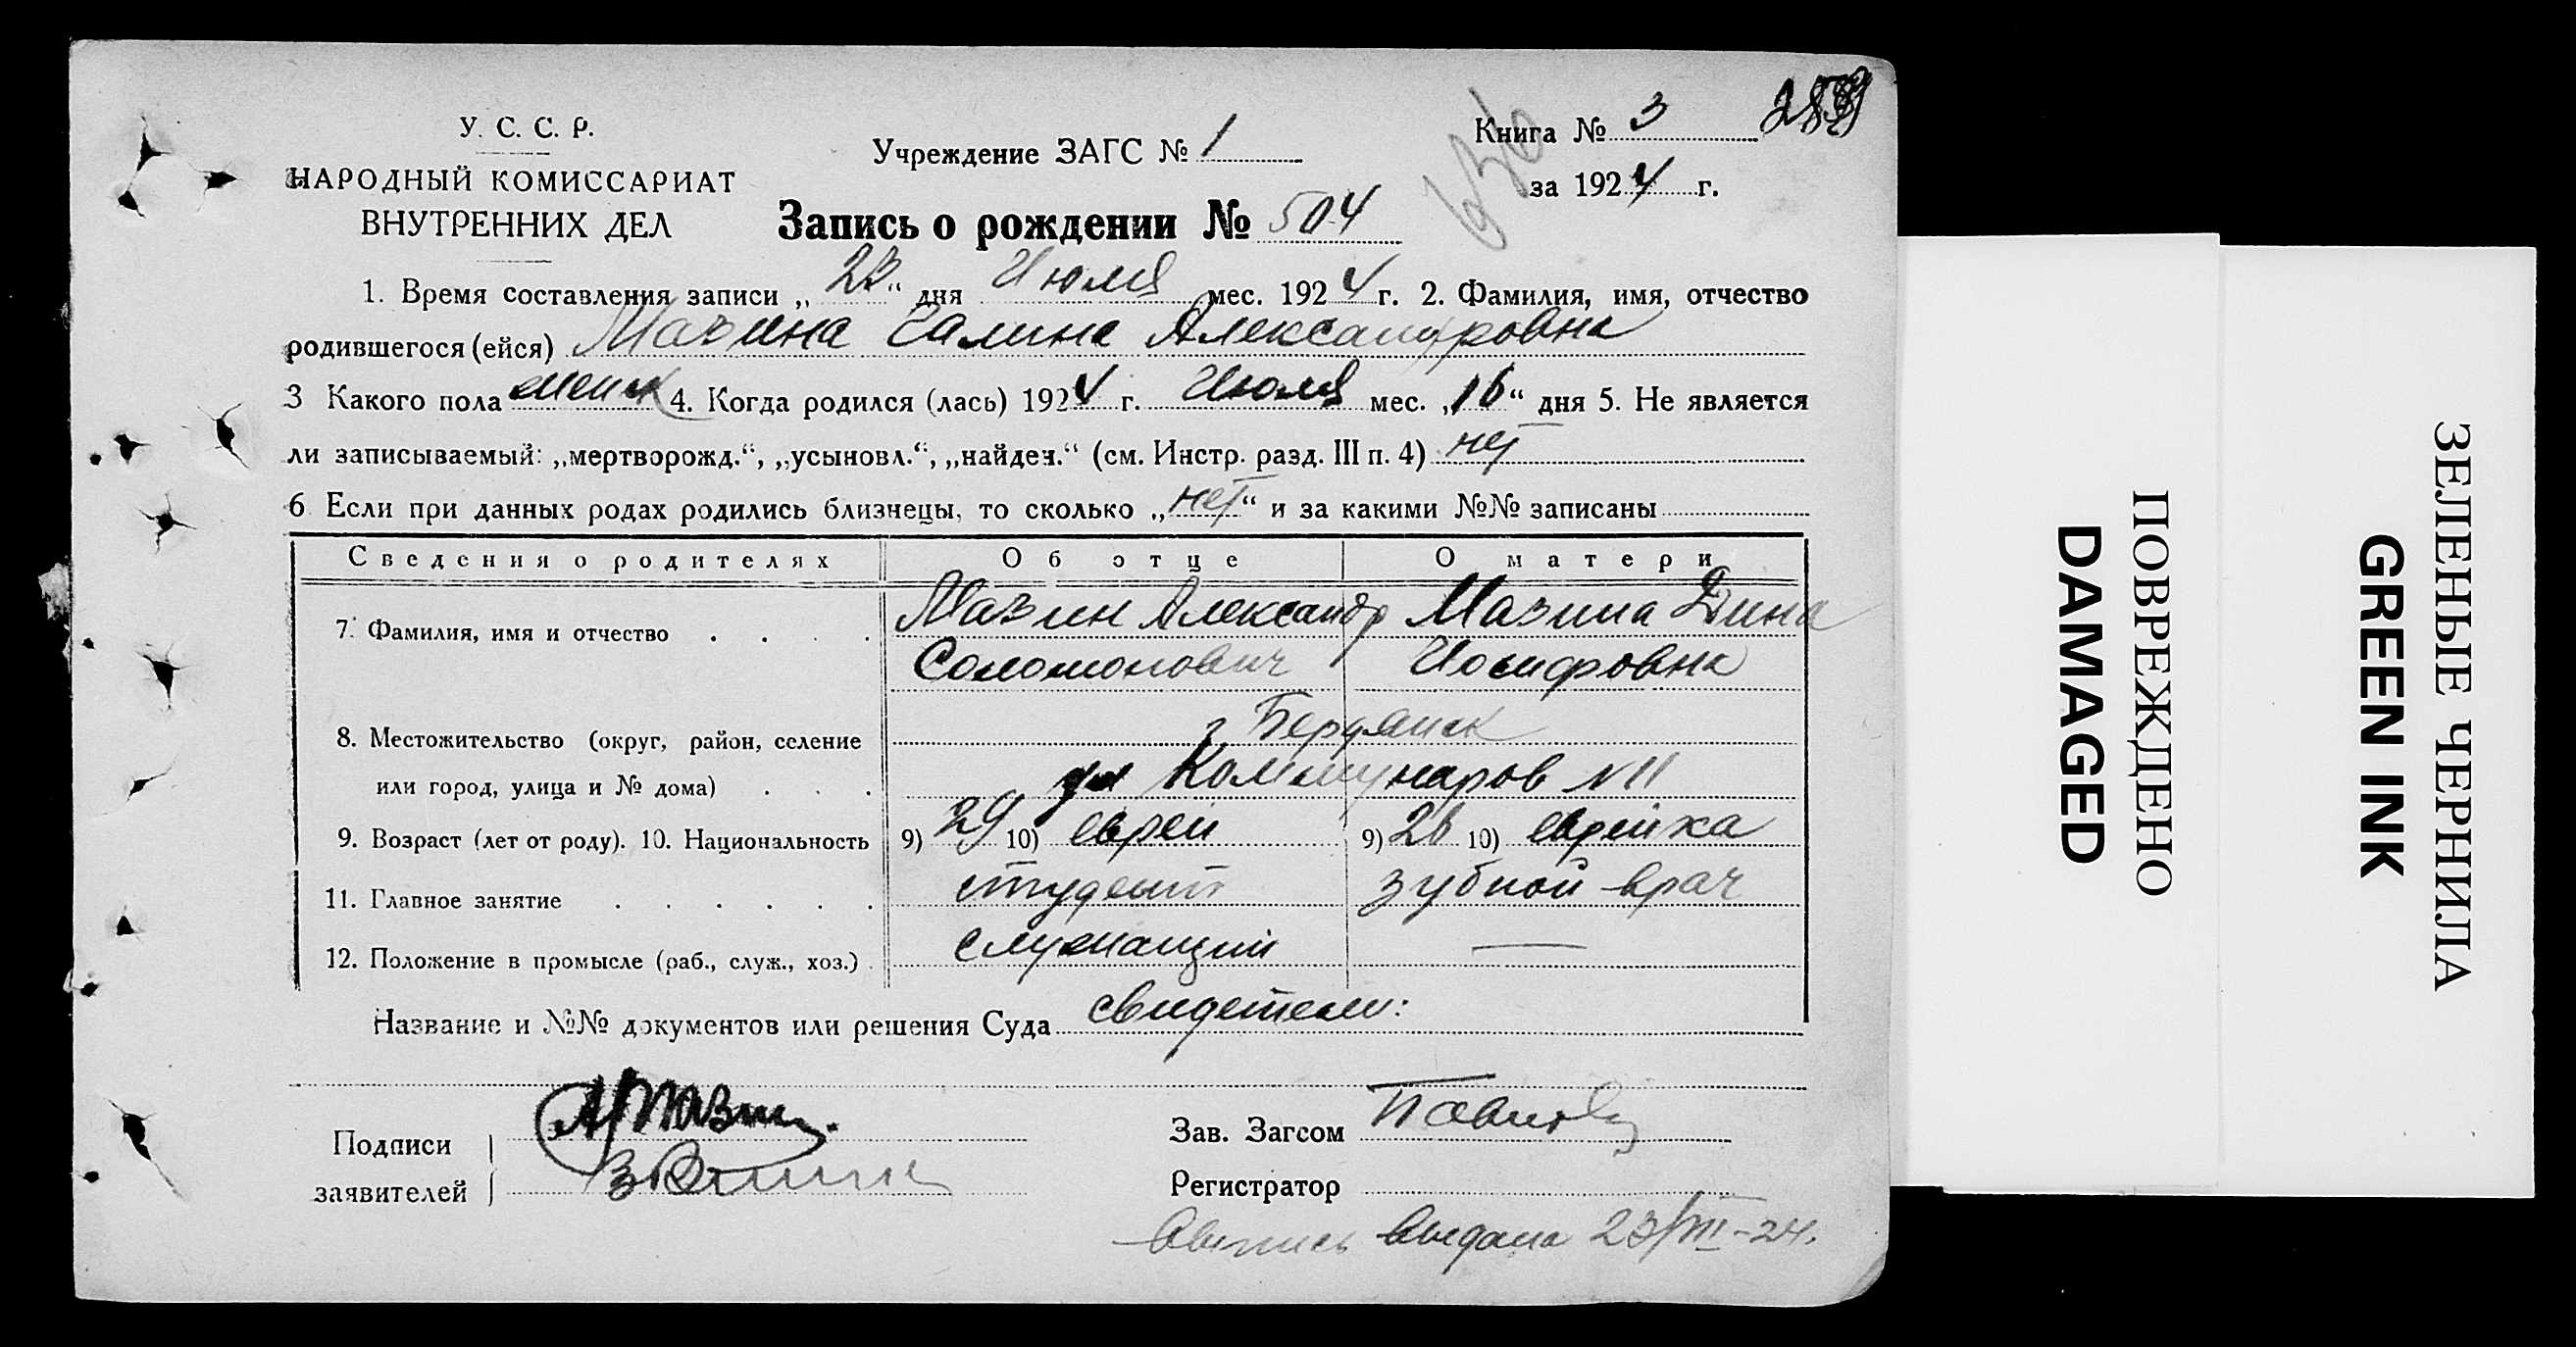 У. С. С. Р.
НАРОДНЫЙ КОМИССАРИАТ
ВНУТРЕННИХ ДЕЛ
Учреждение ЗАГС № 1
Книга № 3
за 1924 г.
Запись о рождении № 504
1. Время составления записи „23“ дня Июля мес. 1924 г. 2. Фамилия, имя, отчество
родившегося (ейся) Мазина Галина Александровна
3 Какого пола женск 4. Когда родился (лась) 1924 г. Июля мес. „16“ дня 5. Не является
ли записываемый: „мертворожд.“, „усыновл.“, „найден.“ (см. Инстр. разд. III п. 4) нет
6 Если при данных родах родились близнецы, то сколько „нет“ и за какими №№ записаны
Сведения о родителях Об отце О матери
7. Фамилия, имя и отчество Мазин Александр Соломонович Мазина Дина Иосифовна
8. Местожительство (округ, район, селение г Бердянск
или город, улица и № дома) ул Коммунаров N 11
9. Возраст (лет от роду). 10. Национальность 9) 29 10) еврей 9) 26 10) еврейка
11. Главное занятие студент зубной врач
12. Положение в промысле (раб., служ., хоз.) служащий —
Название и №№ документов или решения Суда свидетели:
Подписи
заявителей
Зав. Загсом
Регистратор
выдана 23/VII-24.
ПОВРЕЖДЕНО
DAMAGED
ЗЕЛЕНЫЕ ЧЕРНИЛА
GREEN INK